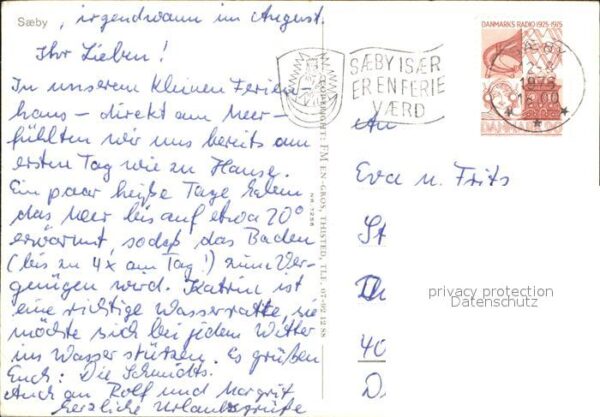 Sæby , irgendwann im August.
Ihr Lieben!
In unserem kleinen Ferien
haus - direkt am Meer -
fühlten wir uns bereits am
ersten Tag wie zu Hause.
Ein paar heiße Tage haben
das Meer bis auf etwa 20°
erwärmt, sodaß das Baden
(bis zu 4x am Tag!) zum Ver-
gnügen wird. Katrin ist
eine richtige Wasserratte, sie
möchte sich bei jedem Wetter
ins Wasser stützen. Es grüßen
Euch: Die Schmidts.
Auch an Rolf und Margrit
herzliche Urlaubsgrüße
COPYRIGHT: FM EN-GROS, THISTED, TLF. 07-92 12 88
SÆBY ISÆR
ER EN FERIE
VÆRD
DANMARKS RADIO 1925-1975
SÆBY
1975
16.00
DANMARK
An
Eva u. Frits
St
40
D.
privacy protection
Datenschutz